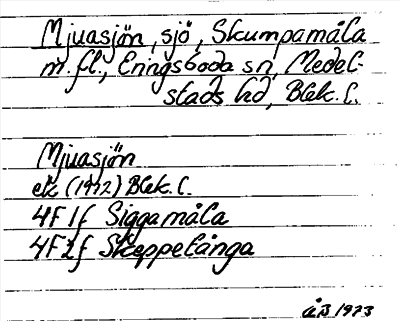 Mjuasjön, sjö, Skumpamåla
m.fl., Eringsboda sn, Medel-
stads hd, Blek. l.
Mjuasjön
ek (1972) Blek. l.
4F 1f Siggamåla
4F 2f Skeppelånga
ÅB 1973